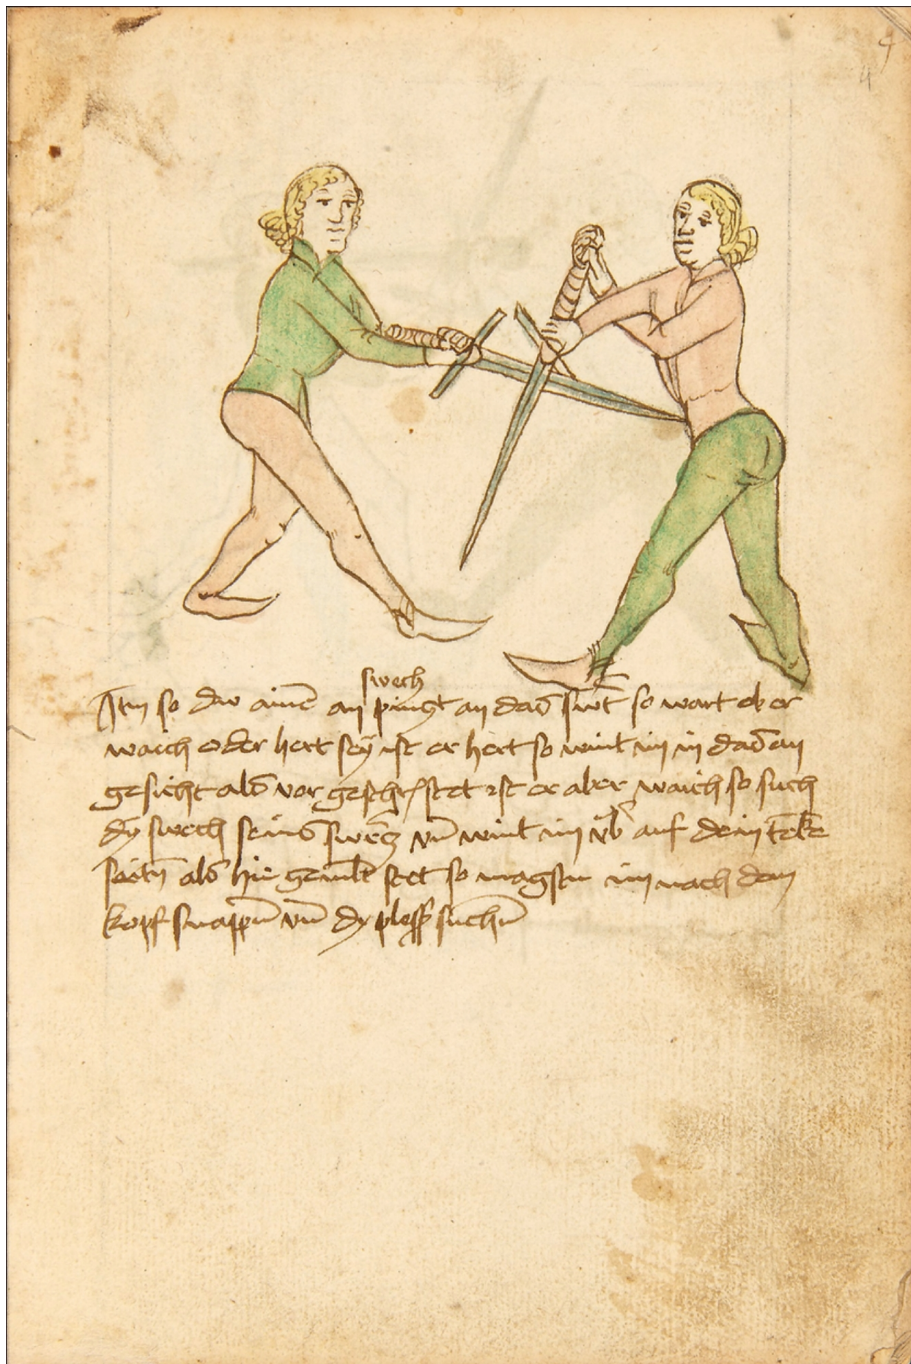 4
4
swech
Itm so dw aine an pingt an das swt so wart ob er
waich oder hert sey ist er hert so wint im in das an
gesicht als vor geschr stet ist er aber waich so such
dy swech seins swertz vn wint im vb auf dein teke
seitn als hie gemlt stet so magstu im nach dem
kopf snappn vn dy plossz suchn